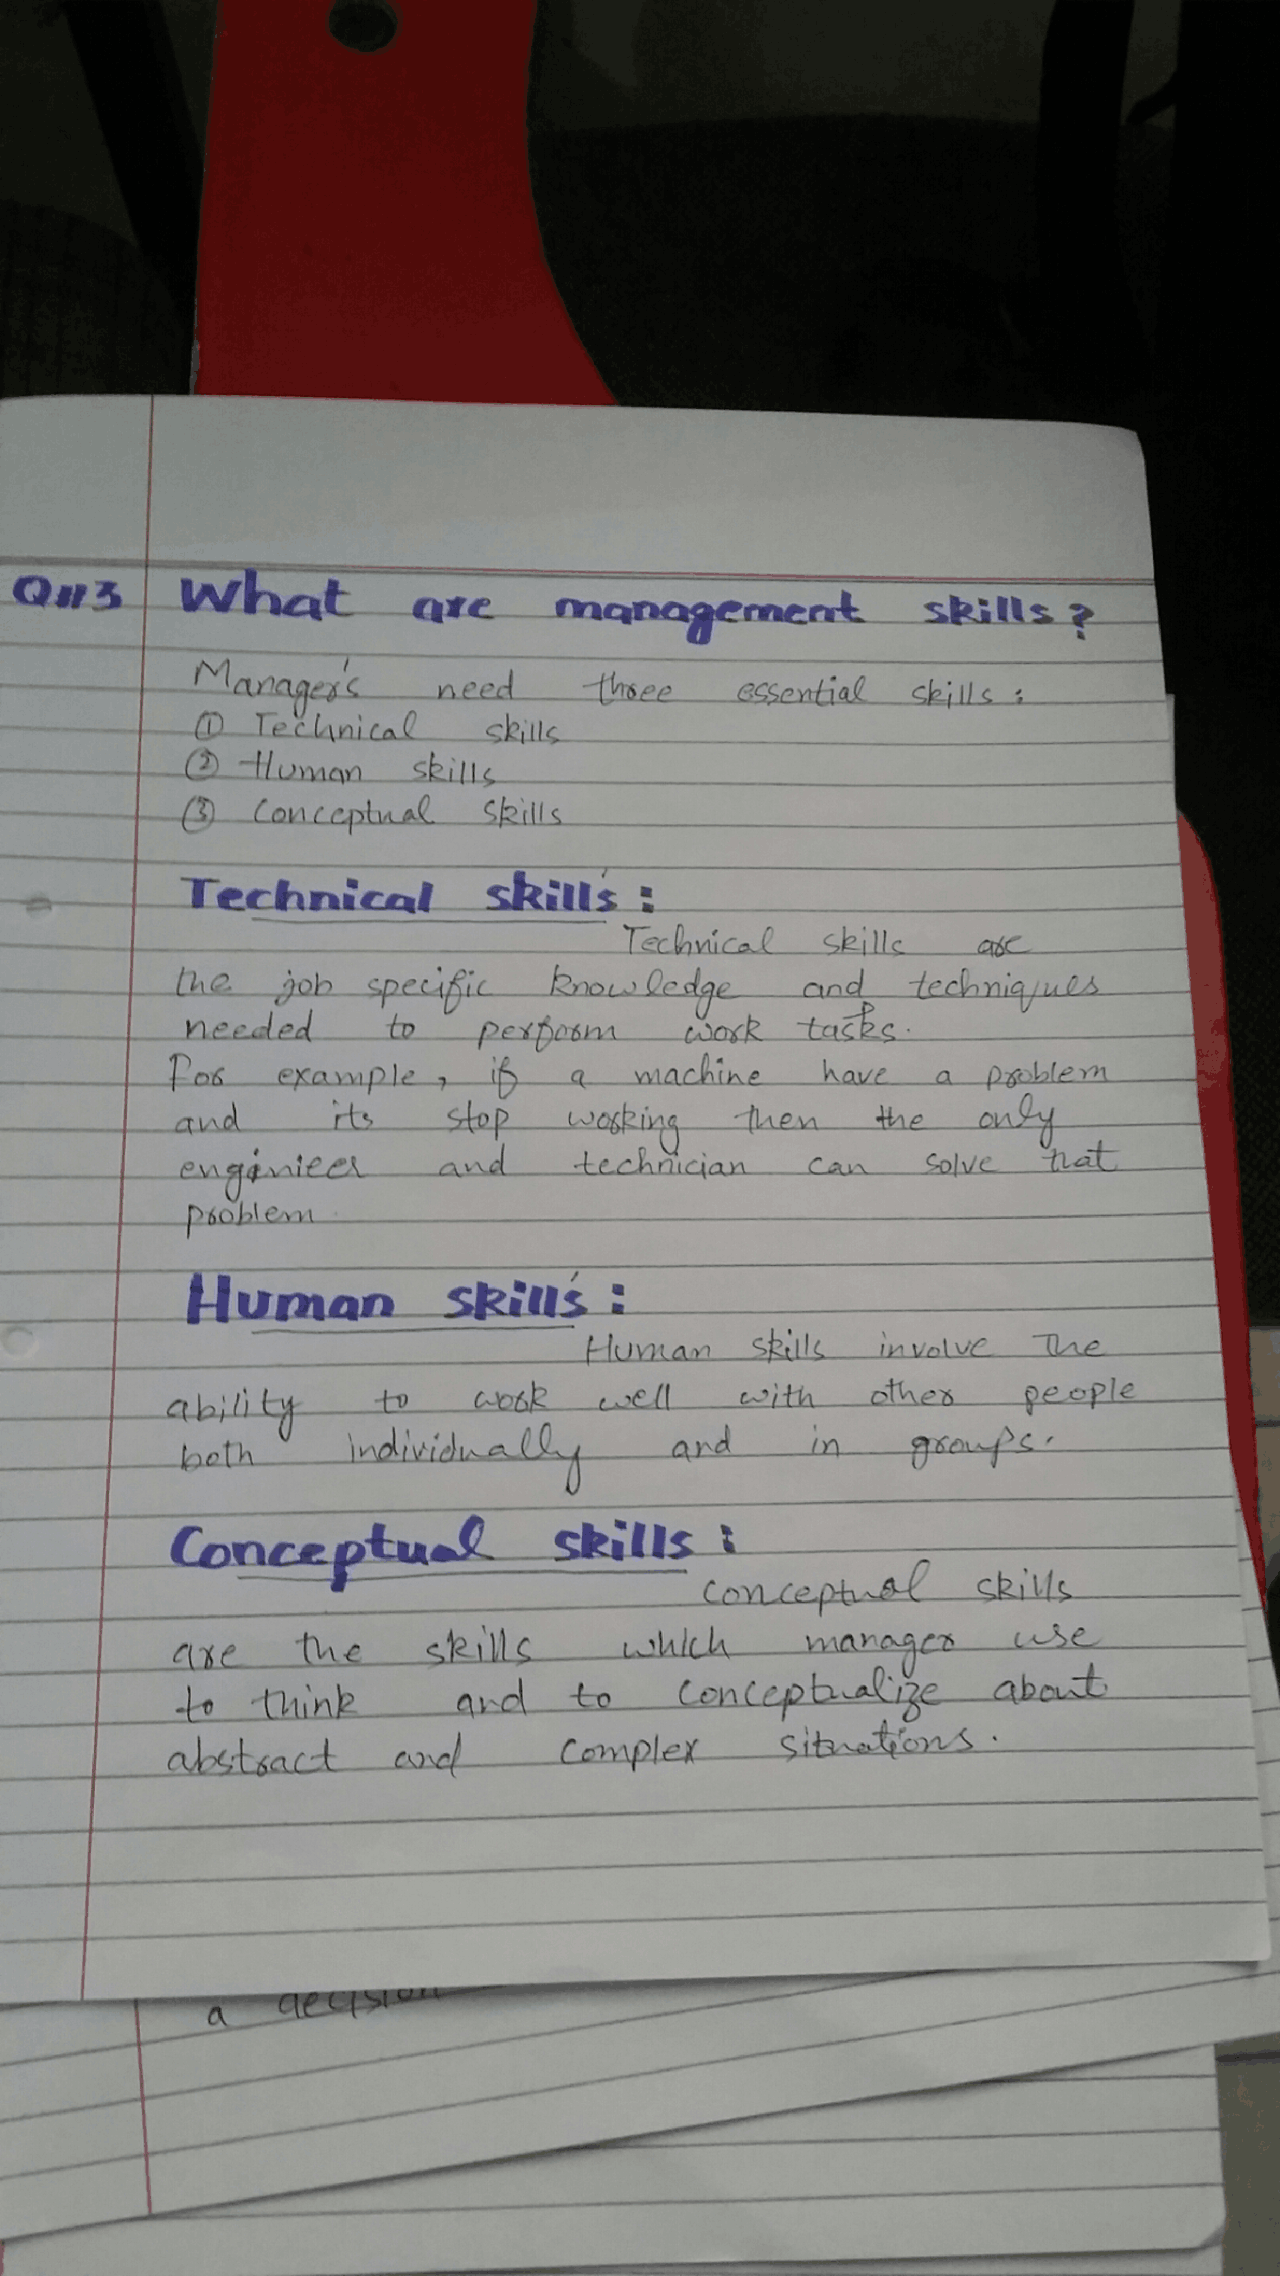 Q113 What are management skills?
Manager's need three essential skills:
① Technical skills
② Human skills
③ Conceptual skills
Technical skill's:
Technical skills are
the job specific knowledge and techniques
needed to perform work tasks.
For example, if a machine have a problem
and its stop working then the only
enginieer and technician can solve that
problem.
Human skill's:
Human skills involve the
ability to work well with other people
both individually and in groups.
Conceptual skills:
Conceptual skills
are the skills which manager use
to think and to conceptualize about
abstract and complex situations.
a decision